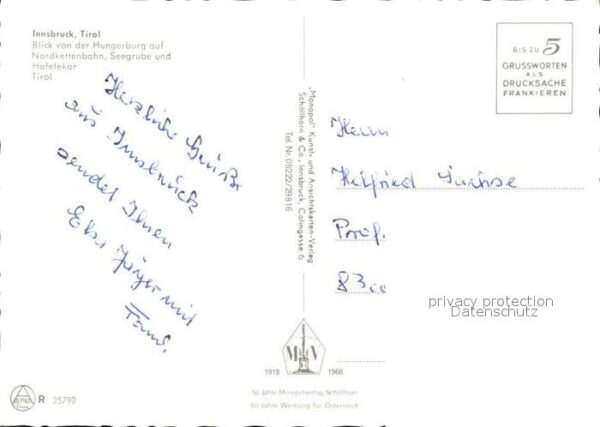 Innsbruck, Tirol
Blick von der Hungerburg auf
Nordkettenbahn, Seegrube und
Hafelekar
Tirol
Herzliche Grüße
aus Innsbruck
sendet Ihnen
mit
Fam.
"Monopol" Kunst- und Ansichtskarten-Verlag
Schöllhorn & Co., Innsbruck, Colingasse 6
Tel. Nr. 05222/29816
BIS ZU 5
GRUSSWORTEN
ALS
DRUCKSACHE
FRANKIEREN
Herrn
Helfried
Prof.
83
privacy protection
Datenschutz
M V
1918 1968
50 Jahre Monopolverlag Schöllhorn
50 Jahre Werbung für Österreich
R 25790